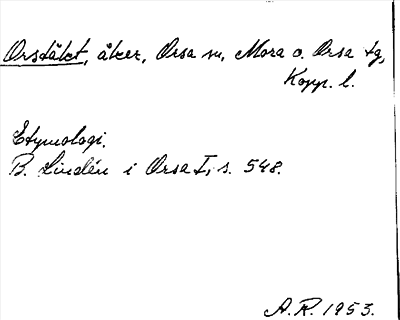 Orstäkt, åker, Orsa sn, Mora o. Orsa tg,
Kopp. l.
Etymologi.
B. Lindén i Orsa I, s. 548.
A.R. 1953.